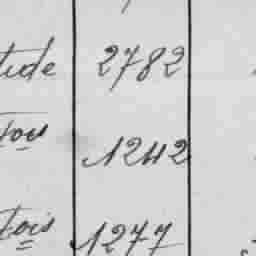 tude 2782
tois 1242
tois 1277